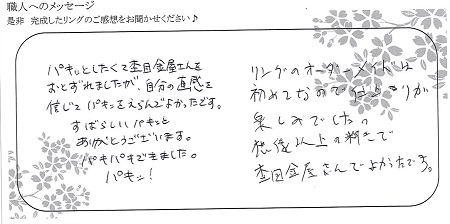 職人へのメッセージ
是非 完成したリングのご感想をお聞かせください♪
パキッとしたくて杢目金屋さんを
おとずれましたが、自分の直感を
信じてパキッをえらんでよかったです。
すばらしいパキッと
ありがとうございます。
パキパキできました。
パキッ!
リングのオーダーメイドは
初めてなので仕上がりが
楽しみでした。
想像以上の輝きで
杢目金屋さんでよかったです。